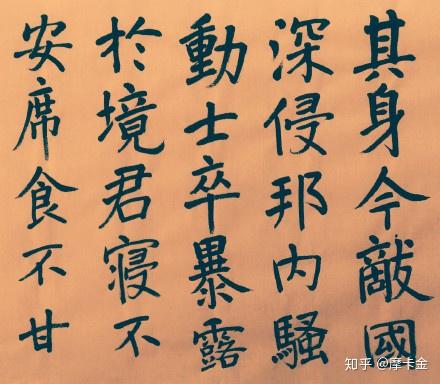 其身今敵國
深侵邦内騷
動士卒暴露
於境君寢不
安席食不甘
知乎 @摩卡金